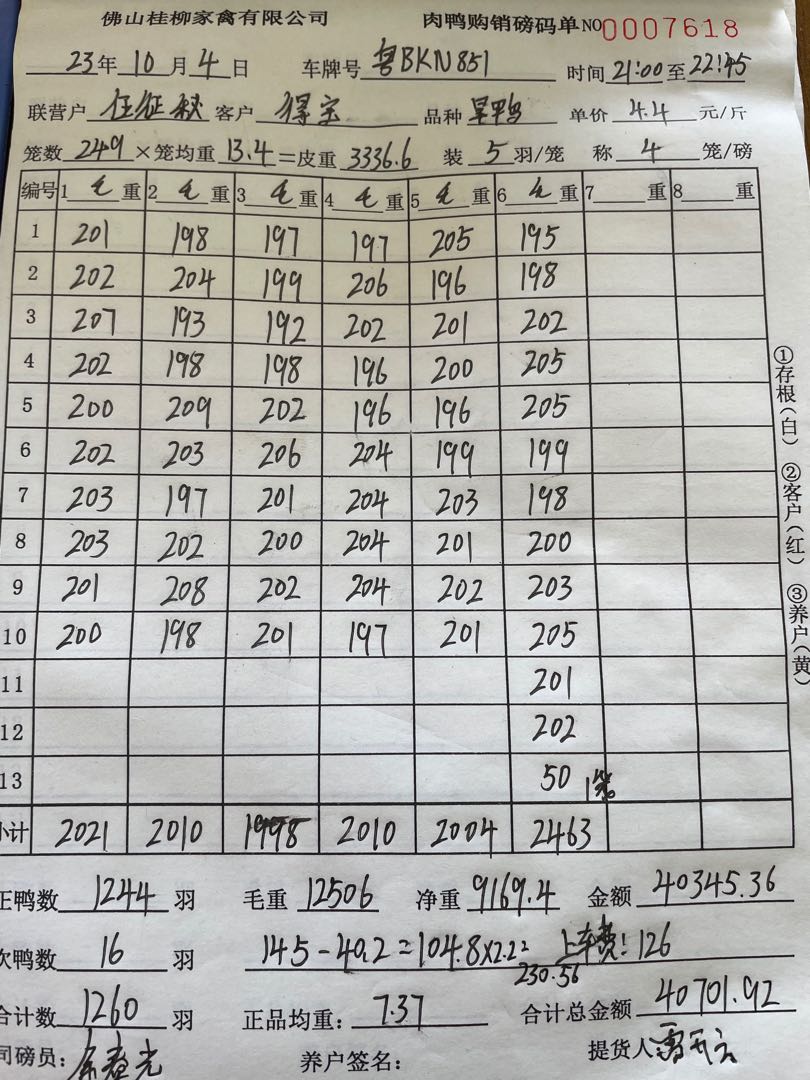 佛山桂柳家禽有限公司 肉鸭购销磅码单 NO 0007618
23年10月4日 车牌号 粤BKN851 时间 21:00至22:45
联营户 任征秋 客户 得宝 品种 旱鸭 单价 4.4 元/斤
笼数 249 ×笼均重 13.4 =皮重 3336.6 装 5 羽/笼 称 4 笼/磅
编号 1 毛 重 2 毛 重 3 毛 重 4 毛 重 5 毛 重 6 毛 重 7 重 8 重
1 201 198 197 197 205 195
2 202 204 199 206 196 198
3 207 193 192 202 201 202
4 202 198 198 196 200 205
5 200 209 202 196 196 205
6 202 203 206 204 199 199
7 203 197 201 204 203 198
8 203 202 200 204 201 200
9 201 208 202 204 202 203
10 200 198 201 197 201 205
11 201
12 202
13 50 1笼
小计 2021 2010 1998 2010 2004 2463
正鸭数 1244 羽 毛重 12506 净重 9169.4 金额 40345.36
次鸭数 16 羽 145-40.2=104.8×2.2 上车费! 126
230.56
合计数 1260 羽 正品均重: 7.37 合计总金额 40701.92
司磅员: 养户签名: 提货人:
①存根(白) ②客户(红) ③养户(黄)